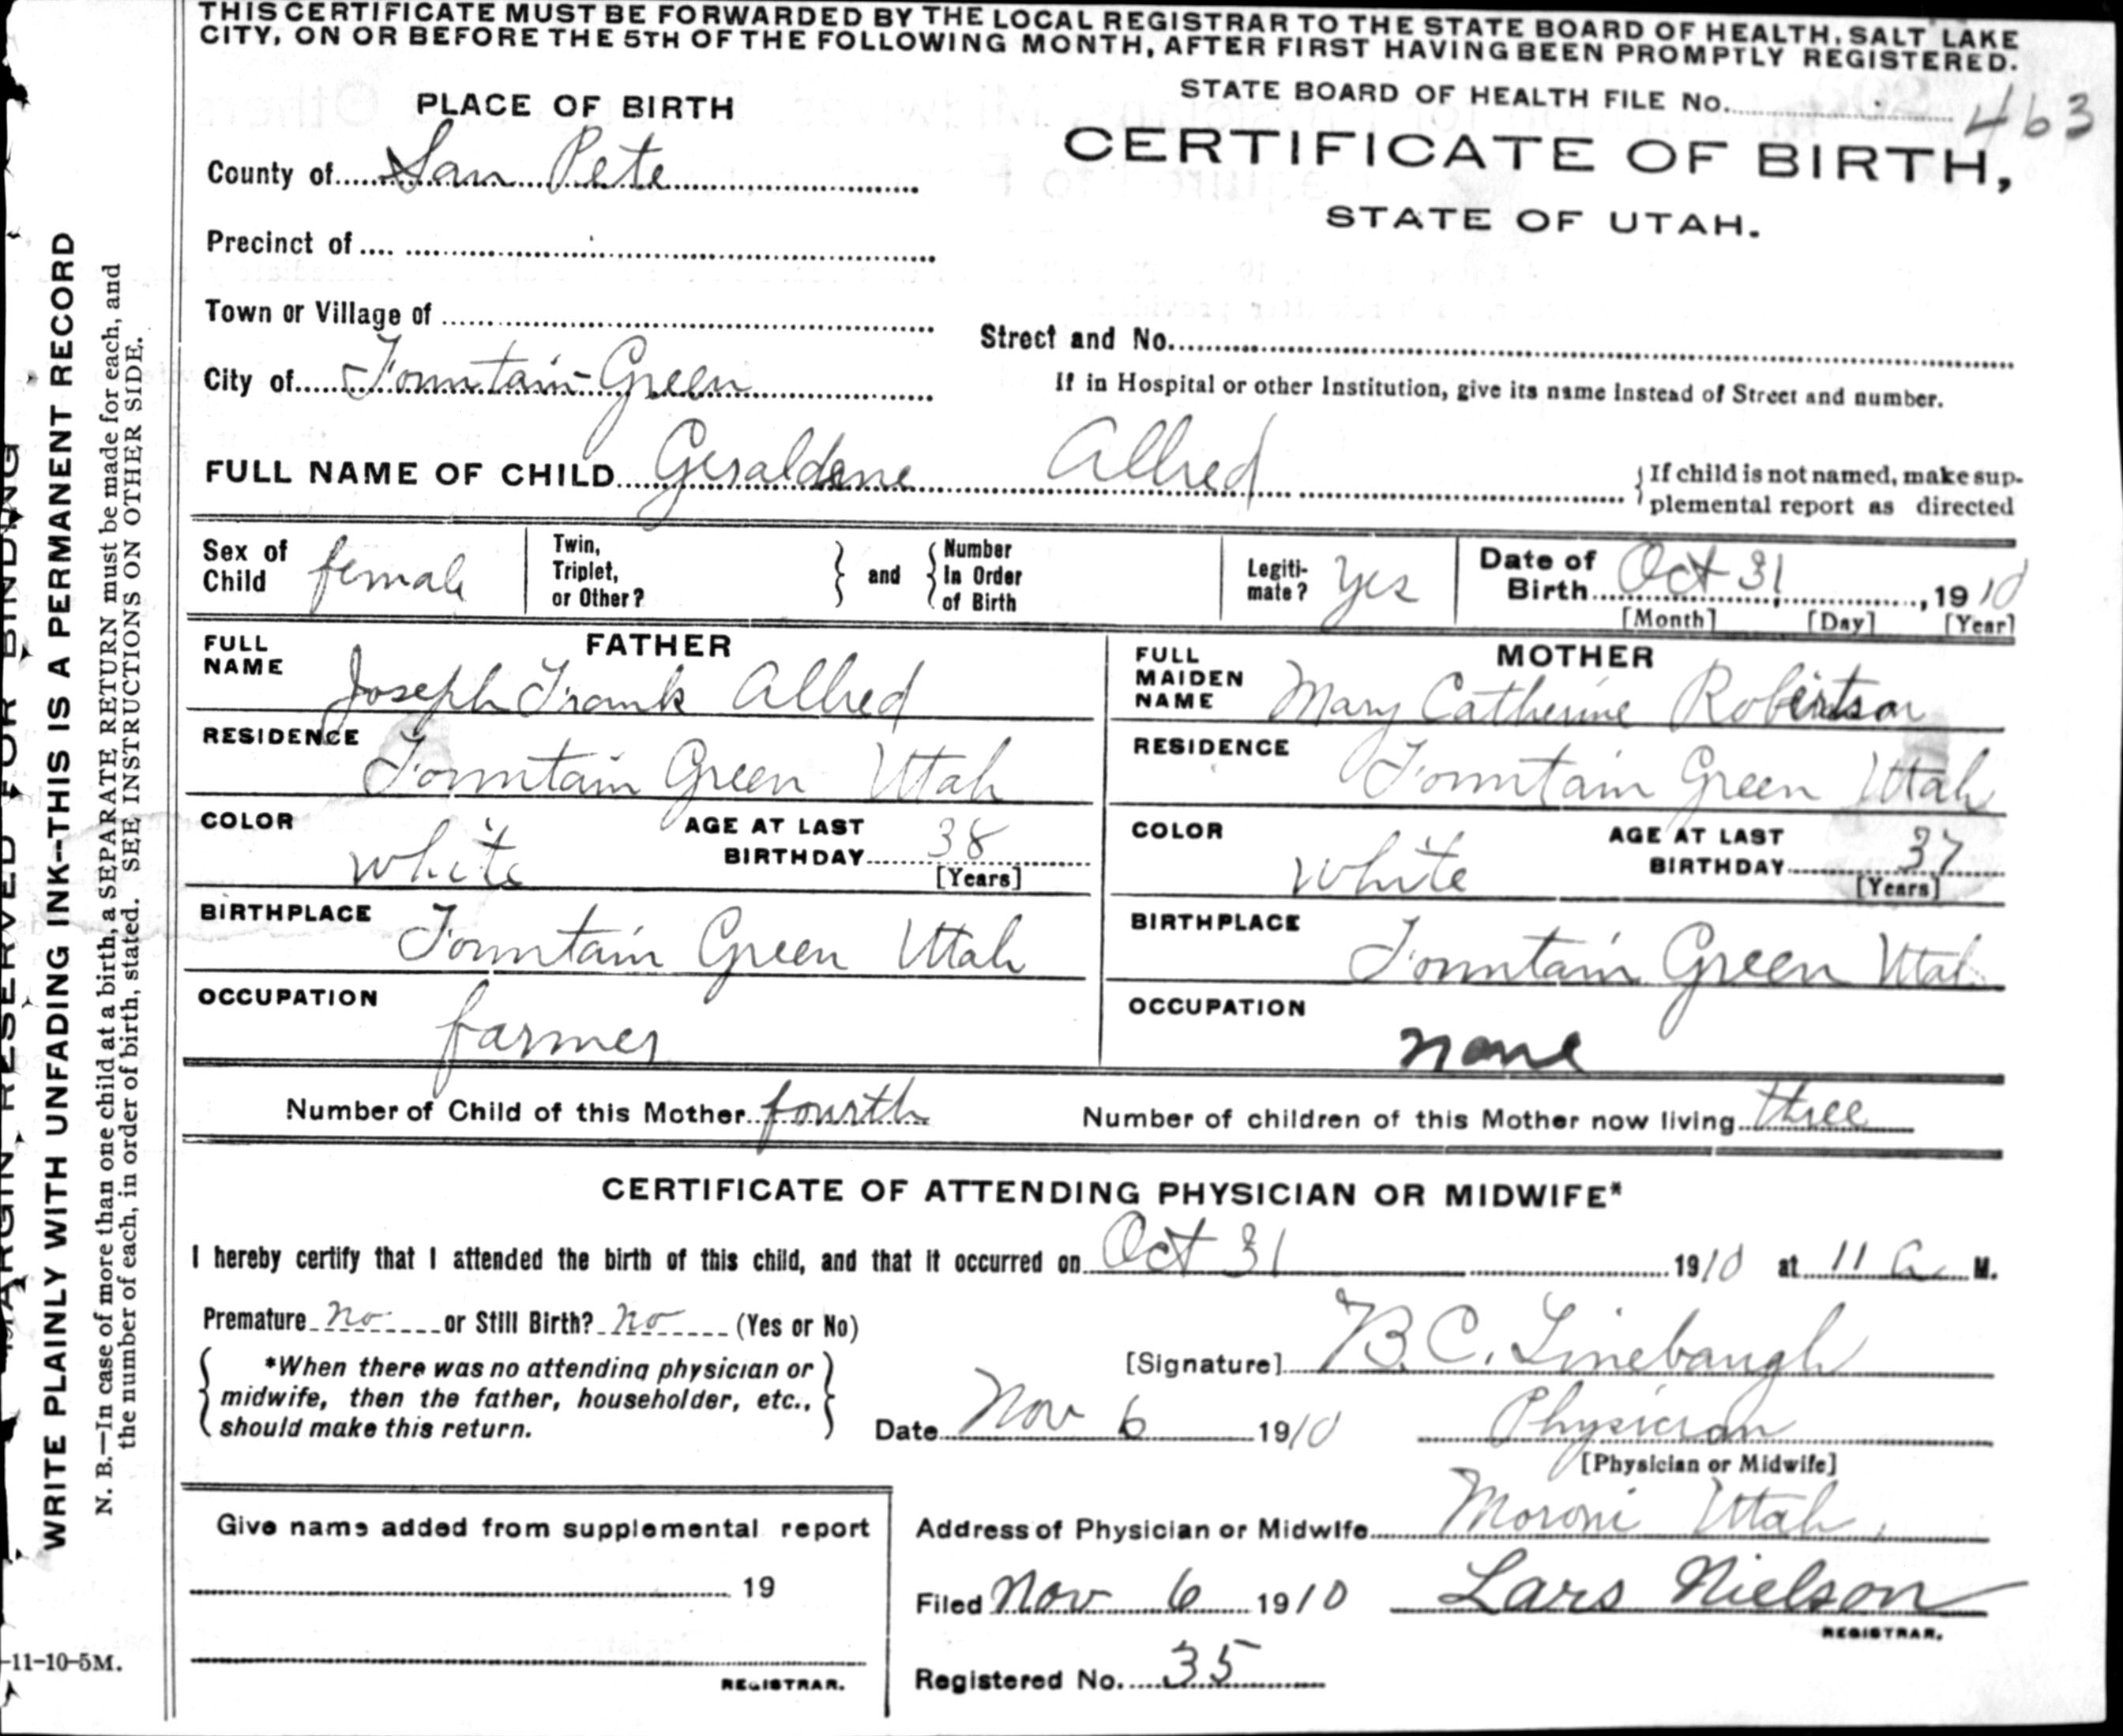 THIS CERTIFICATE MUST BE FORWARDED BY THE LOCAL REGISTRAR TO THE STATE BOARD OF HEALTH, SALT LAKE
CITY, ON OR BEFORE THE 5TH OF THE FOLLOWING MONTH, AFTER FIRST HAVING BEEN PROMPTLY REGISTERED.
STATE BOARD OF HEALTH FILE No. 463
PLACE OF BIRTH
CERTIFICATE OF BIRTH,
STATE OF UTAH.
County of San Pete
Precinct of
Town or Village of
Street and No.
City of Fountain Green
If in Hospital or other Institution, give its name instead of Street and number.
FULL NAME OF CHILD Geraldene Allred
If child is not named, make sup-
plemental report as directed
Sex of Child female
Twin, Triplet, or Other?
and
Number In Order of Birth
Legiti-mate? Yes
Date of Birth Oct 31, 1910
[Month] [Day] [Year]
FATHER
FULL NAME Joseph Frank Allred
RESIDENCE Fountain Green Utah
COLOR white
AGE AT LAST BIRTHDAY 38
[Years]
BIRTHPLACE Fountain Green Utah
OCCUPATION farmer
MOTHER
FULL MAIDEN NAME Mary Catherine Robertson
RESIDENCE Fountain Green Utah
COLOR White
AGE AT LAST BIRTHDAY 37
[Years]
BIRTHPLACE Fountain Green Utah
OCCUPATION none
Number of Child of this Mother fourth
Number of children of this Mother now living three
CERTIFICATE OF ATTENDING PHYSICIAN OR MIDWIFE*
I hereby certify that I attended the birth of this child, and that it occurred on Oct 31 1910 at 11 a M.
Premature no or Still Birth? no (Yes or No)
*When there was no attending physician or
midwife, then the father, householder, etc.,
should make this return.
[Signature] B.C. Linebaugh
Date Nov 6 1910
Physician
[Physician or Midwife]
Give name added from supplemental report
19
REGISTRAR.
Address of Physician or Midwife Moroni Utah,
Filed Nov 6 1910 Lars Nielson
REGISTRAR.
Registered No. 35
MARGIN RESERVED FOR BINDING
WRITE PLAINLY WITH UNFADING INK--THIS IS A PERMANENT RECORD
N. B.—In case of more than one child at a birth, a SEPARATE RETURN must be made for each, and
the number of each, in order of birth, stated. SEE INSTRUCTIONS ON OTHER SIDE.
-11-10-5M.